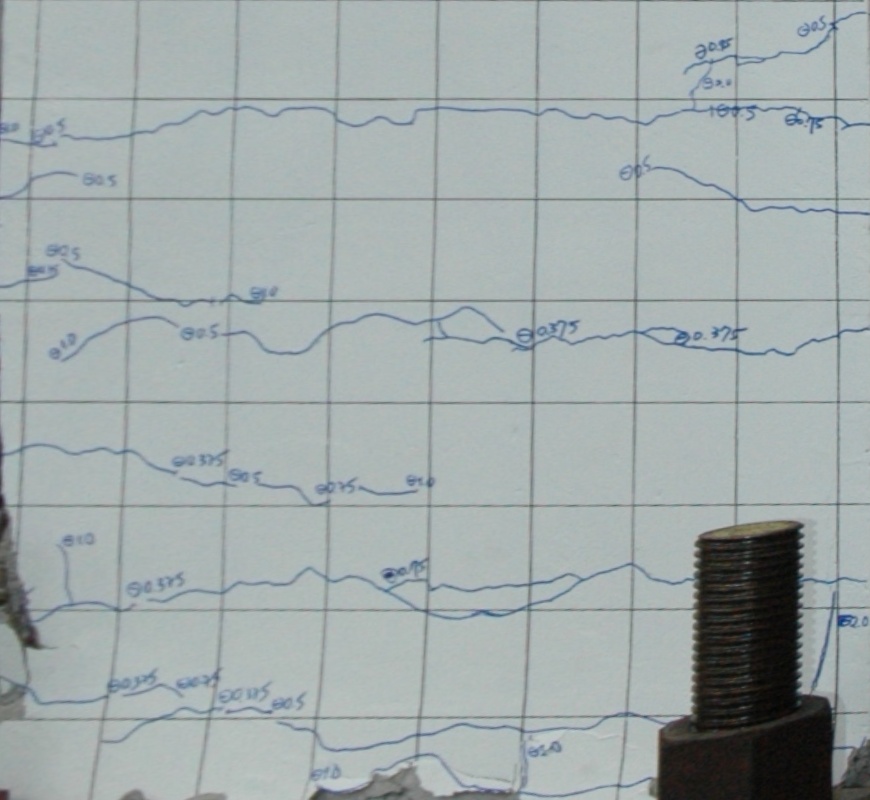 ⊖0.5
⊖0.75
⊖2.0
⊖0.5
⊖0.75
⊖1.0
⊖0.5
⊖0.5
⊖0.5
⊖0.5
⊖1.0
⊖1.0
⊖0.5
⊖0.375
⊖0.375
⊖0.375
⊖0.5
⊖0.75
⊖1.0
⊖1.0
⊖0.75
⊖0.375
⊖2.0
⊖0.375
⊖0.75
⊖0.375
⊖0.5
⊖2.0
⊖1.0